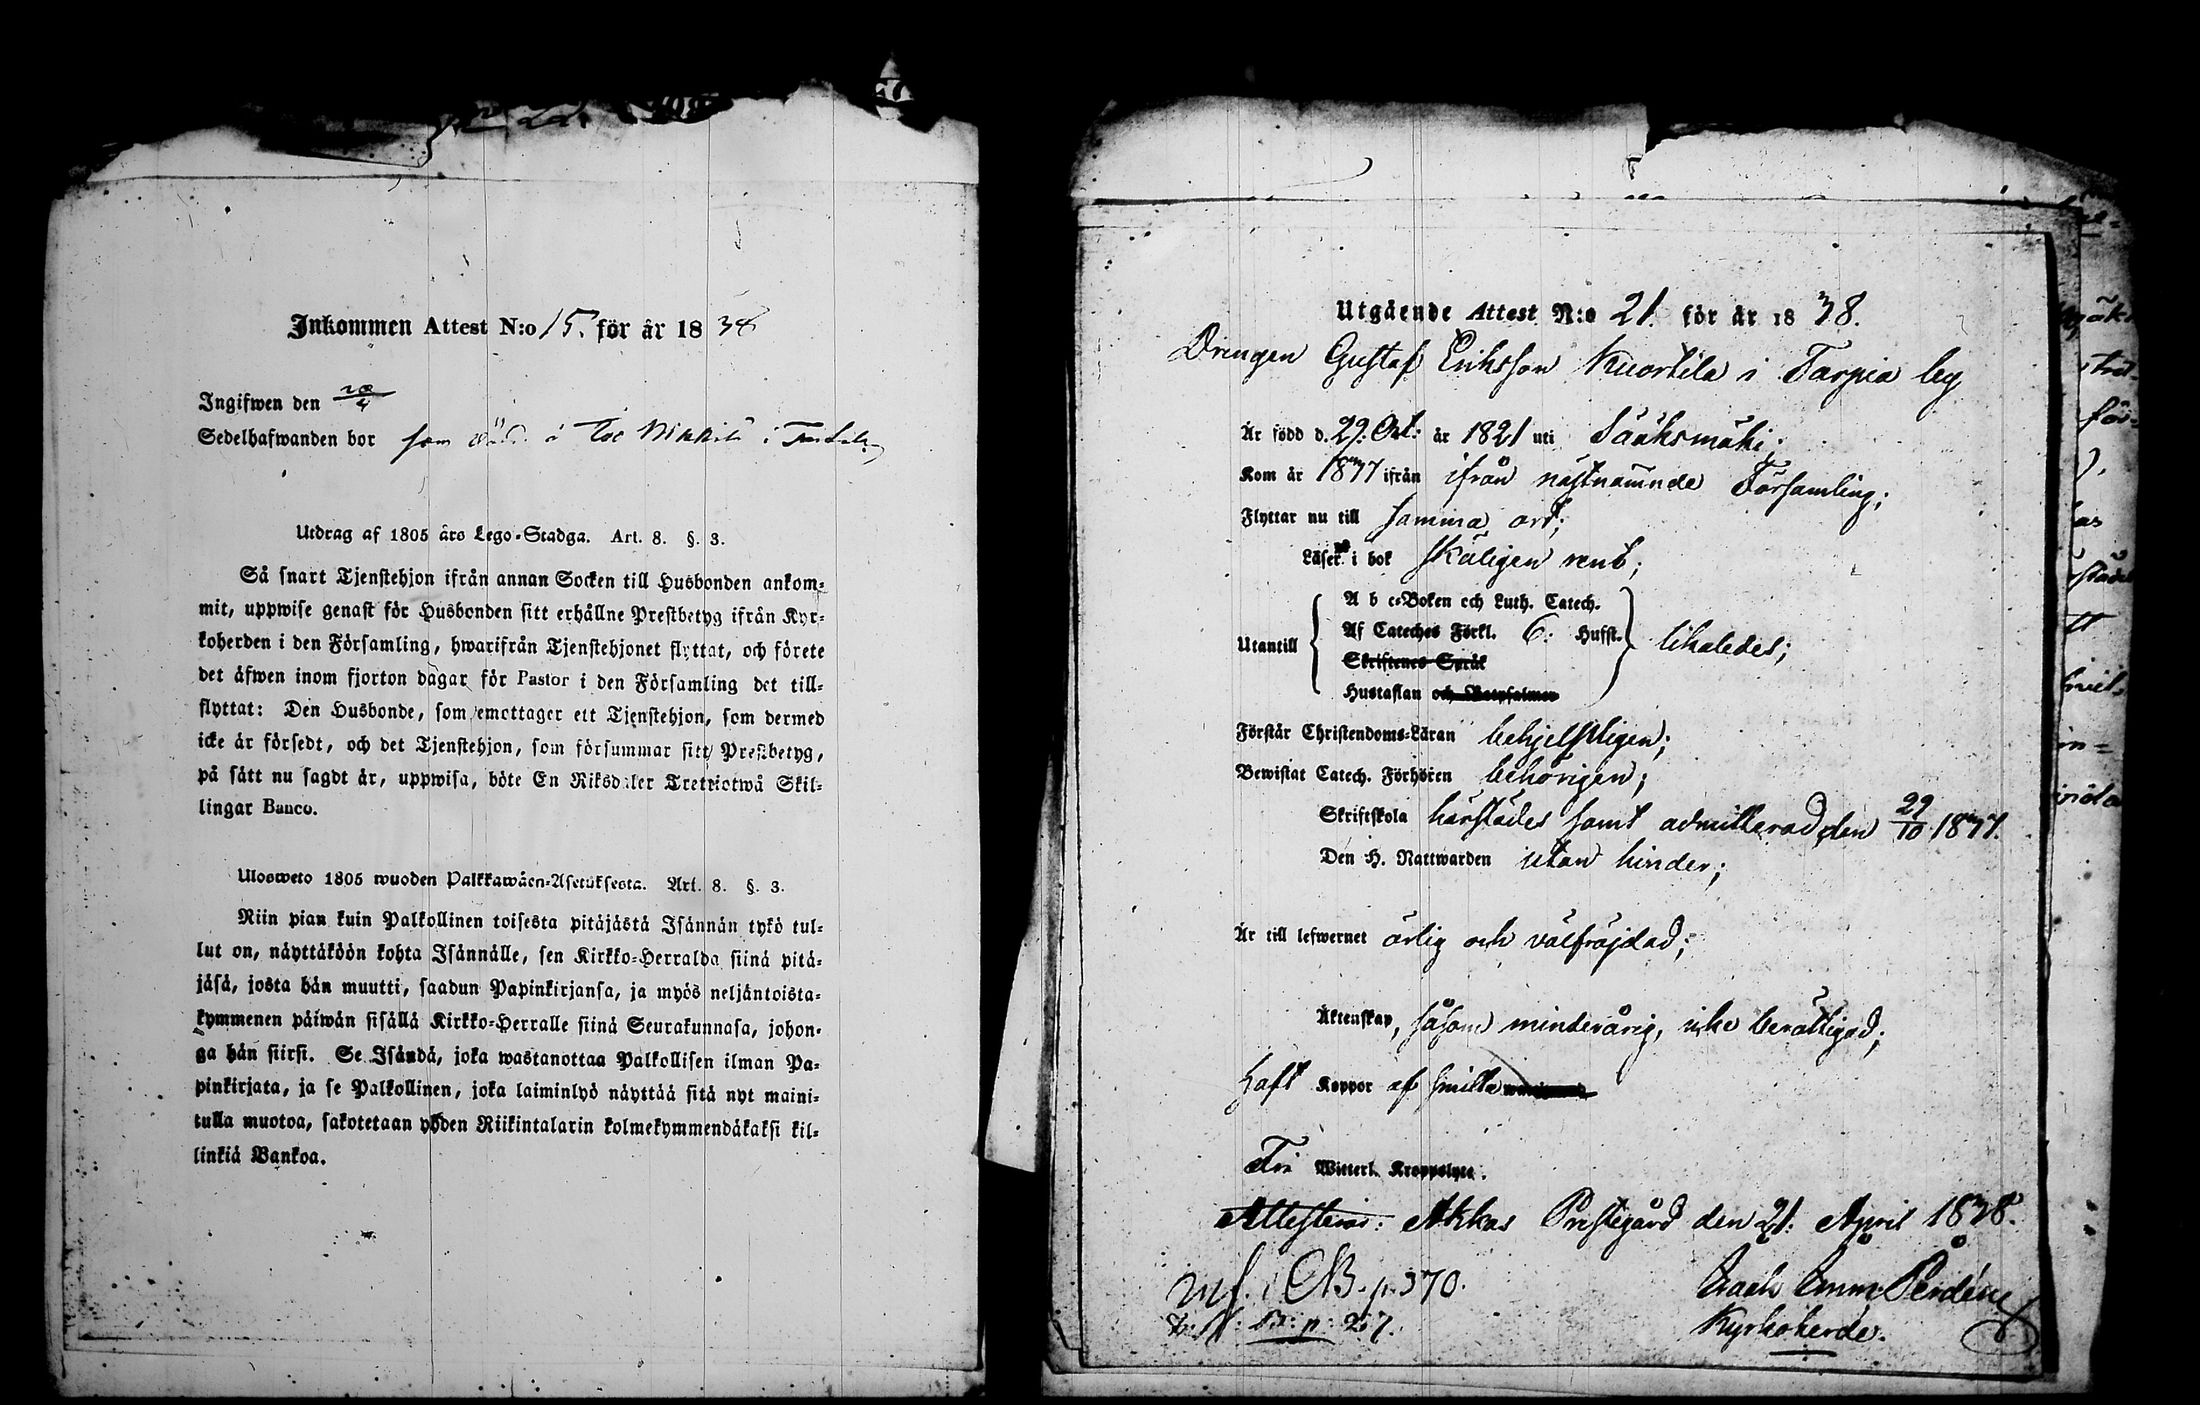 Inkommen Attest N:o 15. för år 1838
Ingifwen den
Sedelhafwanden bor som i
Utdrag af 1805 års Lego-Stadga. Art. 8. §. 3.
Så snart Tjenstehjon ifrån annan Socken till Husbonden ankom-
mit, uppwise genast för Husbonden sitt erhållne Prestbetyg ifrån Kyr-
koherden i den Församling, hwarifrån Tjenstehjonet flyttat, och förete
det äfwen inom fjorton dagar för Pastor i den Församling det till-
flyttat: Den Husbonde, som emottager ett Tjenstehjon, som dermed
icke är försedt, och det Tjenstehjon, som försummar sitt Prestbetyg,
på sätt nu sagdt är, uppwisa, böte En Riksdaler Tretriotwå Skil-
lingar Banco.
Ulosweto 1805 wuoden Palkkawäen-Asetuksesta. Art. 8. §. 3.
Niin pian kuin Palkollinen toisesta pitäjästä Isännän tykö tul-
lut on, näyttäköön kohta Isännälle, sen Kirkko-Herralda siinä pitä-
jäsä, josta hän muutti, saadun Papinkirjansa, ja myös neljäntoista-
kymmenen päiwän sisällä Kirkko-Herralle siinä Seurakunnasa, johon-
ga hän siirsi. Se Isändä, joka wastanottaa Palkollisen ilman Pa-
pinkirjata, ja se Palkollinen, joka laiminlyö näyttää sitä nyt maini-
tulla muotoa, sakotetaan yhden Riikintalarin kolmekymmendäkaksi kil-
linkiä Bankoa.
Utgående Attest N:o 21. för år 1838.
Drengen Gustaf Eriksson Kuortila i Tarpia by
Är född d. 29. Oct: år 1821 uti Sääksmäki;
Kom år 1837 ifrån ifrån nästnämnde Församling;
Flyttar nu till samma ort;
Läser i bok skäligen rent;
A b c-Boken och Luth. Catech.
Af Cateches Förkl. 6: Hufst.
Utantill likaledes;
Skriftenes Språk
Hustaflan och Botpsalmer
Förstår Christendoms-Läran behjelpligen;
Bewistat Catech. Förhören behörigen;
Skriftskola härstädes samt admitterad den 29/10 1837.
Den H. Nattwarden utan hinder;
Är till lefwernet ärlig och välfräjdad;
Äktenskap, såsom minderårig, icke berättigad;
Haft Koppor af smitta
Fri Witterl. Kroppslyte.
Attesterar: Akkas Prestegård den 21. April 1838.
Inf. i CB. p. 370.
p: 27.
Kyrkoherde.